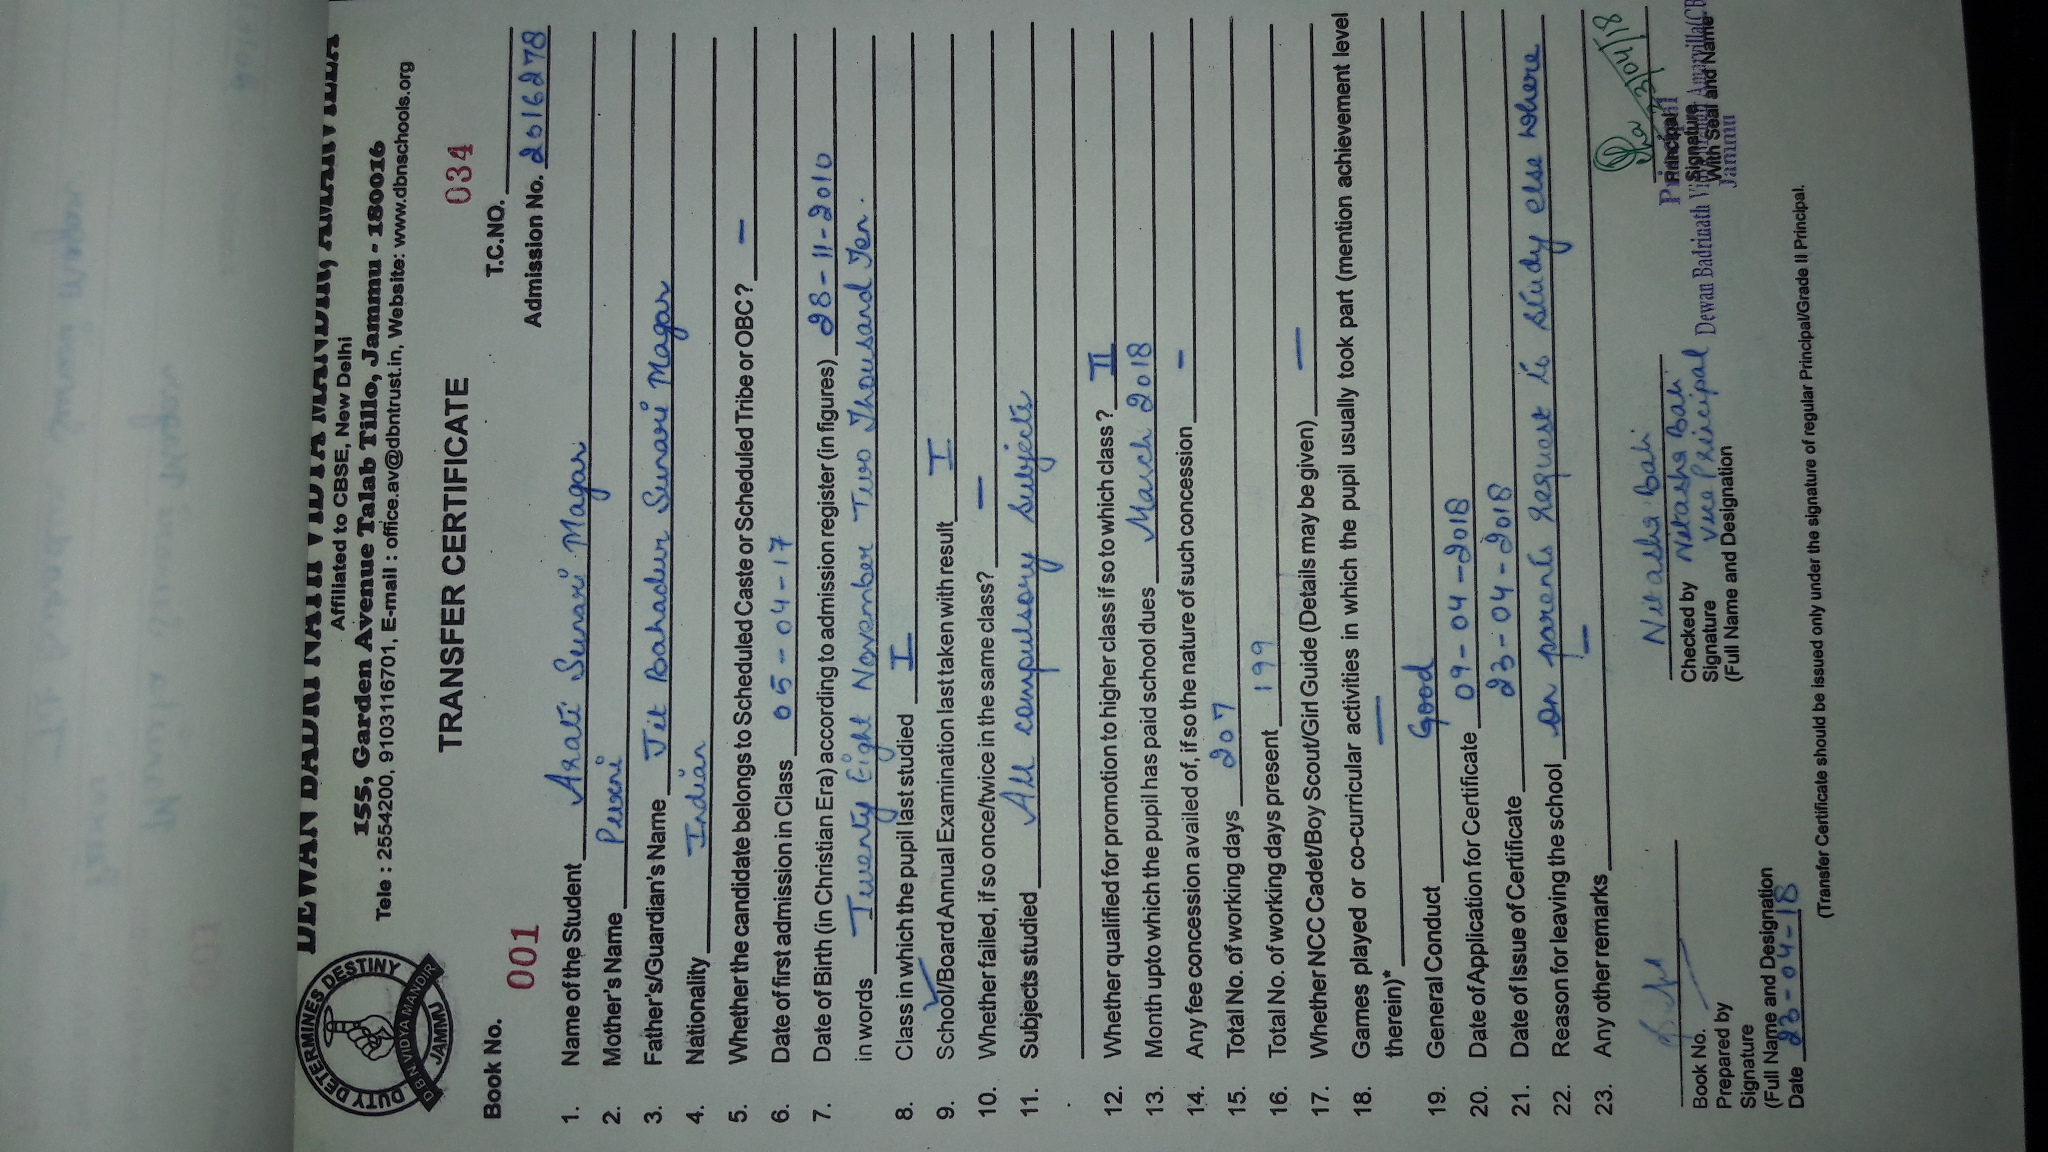 DEWAN BADRI NATH VIDYA MANDIR, AMARVILLA
Affiliated to CBSE, New Delhi
155, Garden Avenue Talab Tillo, Jammu - 180016
Tele : 2554200, 9103116701, E-mail : office.av@dbntrust.in, Website: www.dbnschools.org
DUTY DETERMINES DESTINY
D.B.N. VIDYA MANDIR
JAMMU
TRANSFER CERTIFICATE
034
Book No. 001 T.C.NO.
Admission No. 2516278
1. Name of the Student Arati Sunari Magar
2. Mother's Name
3. Father's/Guardian's Name Jit Bahadur Sunari Magar
4. Nationality Indian
5. Whether the candidate belongs to Scheduled Caste or Scheduled Tribe or OBC ? —
6. Date of first admission in Class 05-04-17
7. Date of Birth (in Christian Era) according to admission register (in figures) 28-11-2010
in words Twenty Eight November Two Thousand Ten.
8. Class in which the pupil last studied I
9. School/Board Annual Examination last taken with result I
10. Whether failed, if so once/twice in the same class? —
11. Subjects studied All compulsory Subjects
12. Whether qualified for promotion to higher class if so to which class ? II
13. Month upto which the pupil has paid school dues March 2018
14. Any fee concession availed of, if so the nature of such concession —
15. Total No. of working days 207
16. Total No. of working days present 199
17. Whether NCC Cadet/Boy Scout/Girl Guide (Details may be given) —
18. Games played or co-curricular activities in which the pupil usually took part (mention achievement level
therein)* —
19. General Conduct Good
20. Date of Application for Certificate 09-04-2018
21. Date of Issue of Certificate 23-04-2018
22. Reason for leaving the school On parents request to study else where
23. Any other remarks —
23/04/18
Nitasha Bali
Book No.
Prepared by
Signature
(Full Name and Designation
Date 23-04-18
Checked by Natasha Bali
Signature Vice Principal
(Full Name and Designation
Principal
Signature
With Seal and Name
Principal
Dewan Badrinath
Jammu
(Transfer Certificate should be issued only under the signature of regular Principal/Grade II Principal.